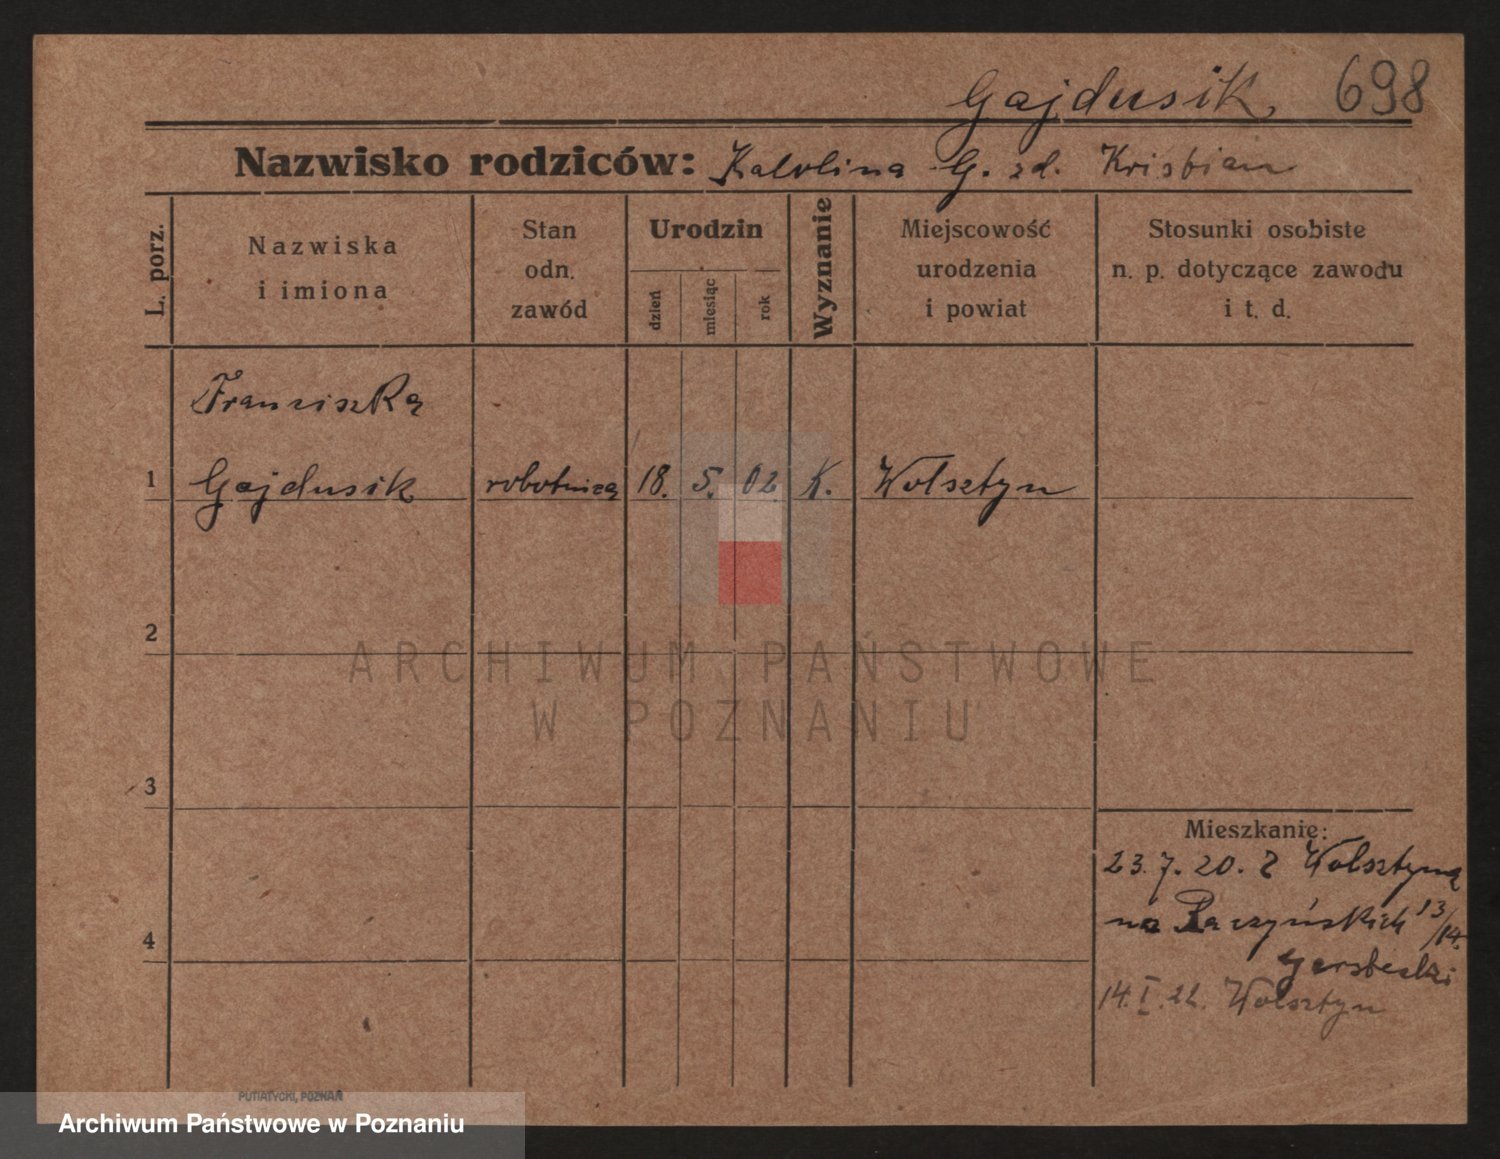 Gajdusik, 698
Nazwisko rodziców: Karolina G. zd. Kristian
L. porz.
Nazwiska
i imiona
Stan
odn.
zawód
Urodzin
dzień
miesiąc
rok
Wyznanie
Miejscowość
urodzenia
i powiat
Stosunki osobiste
n. p. dotyczące zawodu
i t. d.
Franciszka
1 Gajdusik robotnica 18. 5. 02. K. Wolsztyn
2
ARCHIWUM PAŃSTWOWE
W POZNANIU
3
Mieszkanie:
23.7.20. z Wolsztyna
na 13/14.
4
14.I.22. Wolsztyn
PUTIATYCKI, POZNAŃ
Archiwum Państwowe w Poznaniu